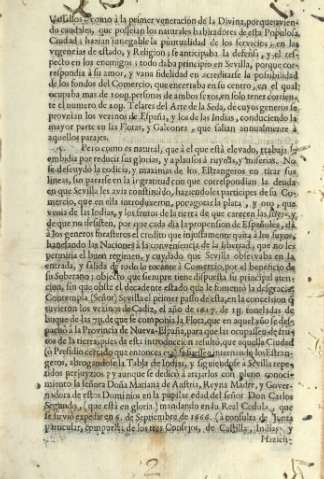 Vassallos, como à la primer veneracion de la Divina, porque avien-
do caudales, que posseian los naturales habitadores de esta Populosa
Ciudad, hazian innegable la puntualidad de los servicios, en las
urgencias de estado, y Religion; se anticipaba la defensa, y el res-
pecto en los enemigos; todo daba principio en Sevilla, porque cor-
respondia à su amor, y vana fidelidad en acreditarse la possibilidad
de los fondos del Comercio, que encerraba en su centro, en el qual
ocupaba mas de personas de ambos sexos, en solo tener corrien-
te el numero de Telares del Arte de la Seda, de cuyos generos se
proveian los vezinos de España, y los de las Indias, conduciendo la
mayor parte en las Flotas, y Galeones, que salian annualmente à
aquellos parajes.
Pero como es natural, que à el que està elevado, trabaja la
embidia por reducir sus glorias, y aplausos à ruynas, y miserias. No
se descuydò la codicia, y maximas de los Estrangeros en tirar sus
lineas, sin pararse en la ingratitud con que correspondian la deuda
en que Sevilla les avia constituido, haziendoles participes de su Co-
mercio, que en ella introduxeron, por agotar la plata, y oro, que
venia de las Indias, y los frutos de la tierra de que carecen las suyas, y
de que no desisten, por que cada dia la propension de Españoles, dà
à los generos forasteros el credito que injustamente quita à los suyos,
hanelando las Naciones à la conveniencia de la libertad, que no les
permitia el buen regimen, y cuydado que Sevilla observaba en la
entrada, y salida de todo lo tocante à Comercio, por el beneficio de
su Soberano; objecto que siempre tiene dispuesta su principal aten-
cion, sin que obste el decadente estado que le fomentò la desgracia.
Contempla (Señor) Sevilla el primer passo de esta, en la concession q̃
tuvieron los vezinos de Cadiz, el año de toneladas de
buque de las que se componia la Flota, que en aquel año se des-
pachò à la Provincia de Nueva-España, para que las ocupassen de fru-
tos de la tierra, pues de esta introduccion resultò, que aquella Ciudad
(ò Presidio cercado que entonces era) solicitasse intento de los Estran-
geros, abrogandole la Tabla de Indias, y siguiendose à Sevilla repe-
tidos perjuyzios; y aunque se dedicò à atajarlos con pleno conoci-
miento la señora Doña Mariana de Austria, Reyna Madre, y Gover-
nadora de estos Dominios en la pupilar edad del Señor Don Carlos
Segundo, (que està en gloria) mandando en su Real Cedula, que
se sirviò expedir en 6. de Septiembre de 1666. (à consulta de Junta
particular, compuesta de los tres Consejos, de Castilla, Indias, y
Hazien-
2